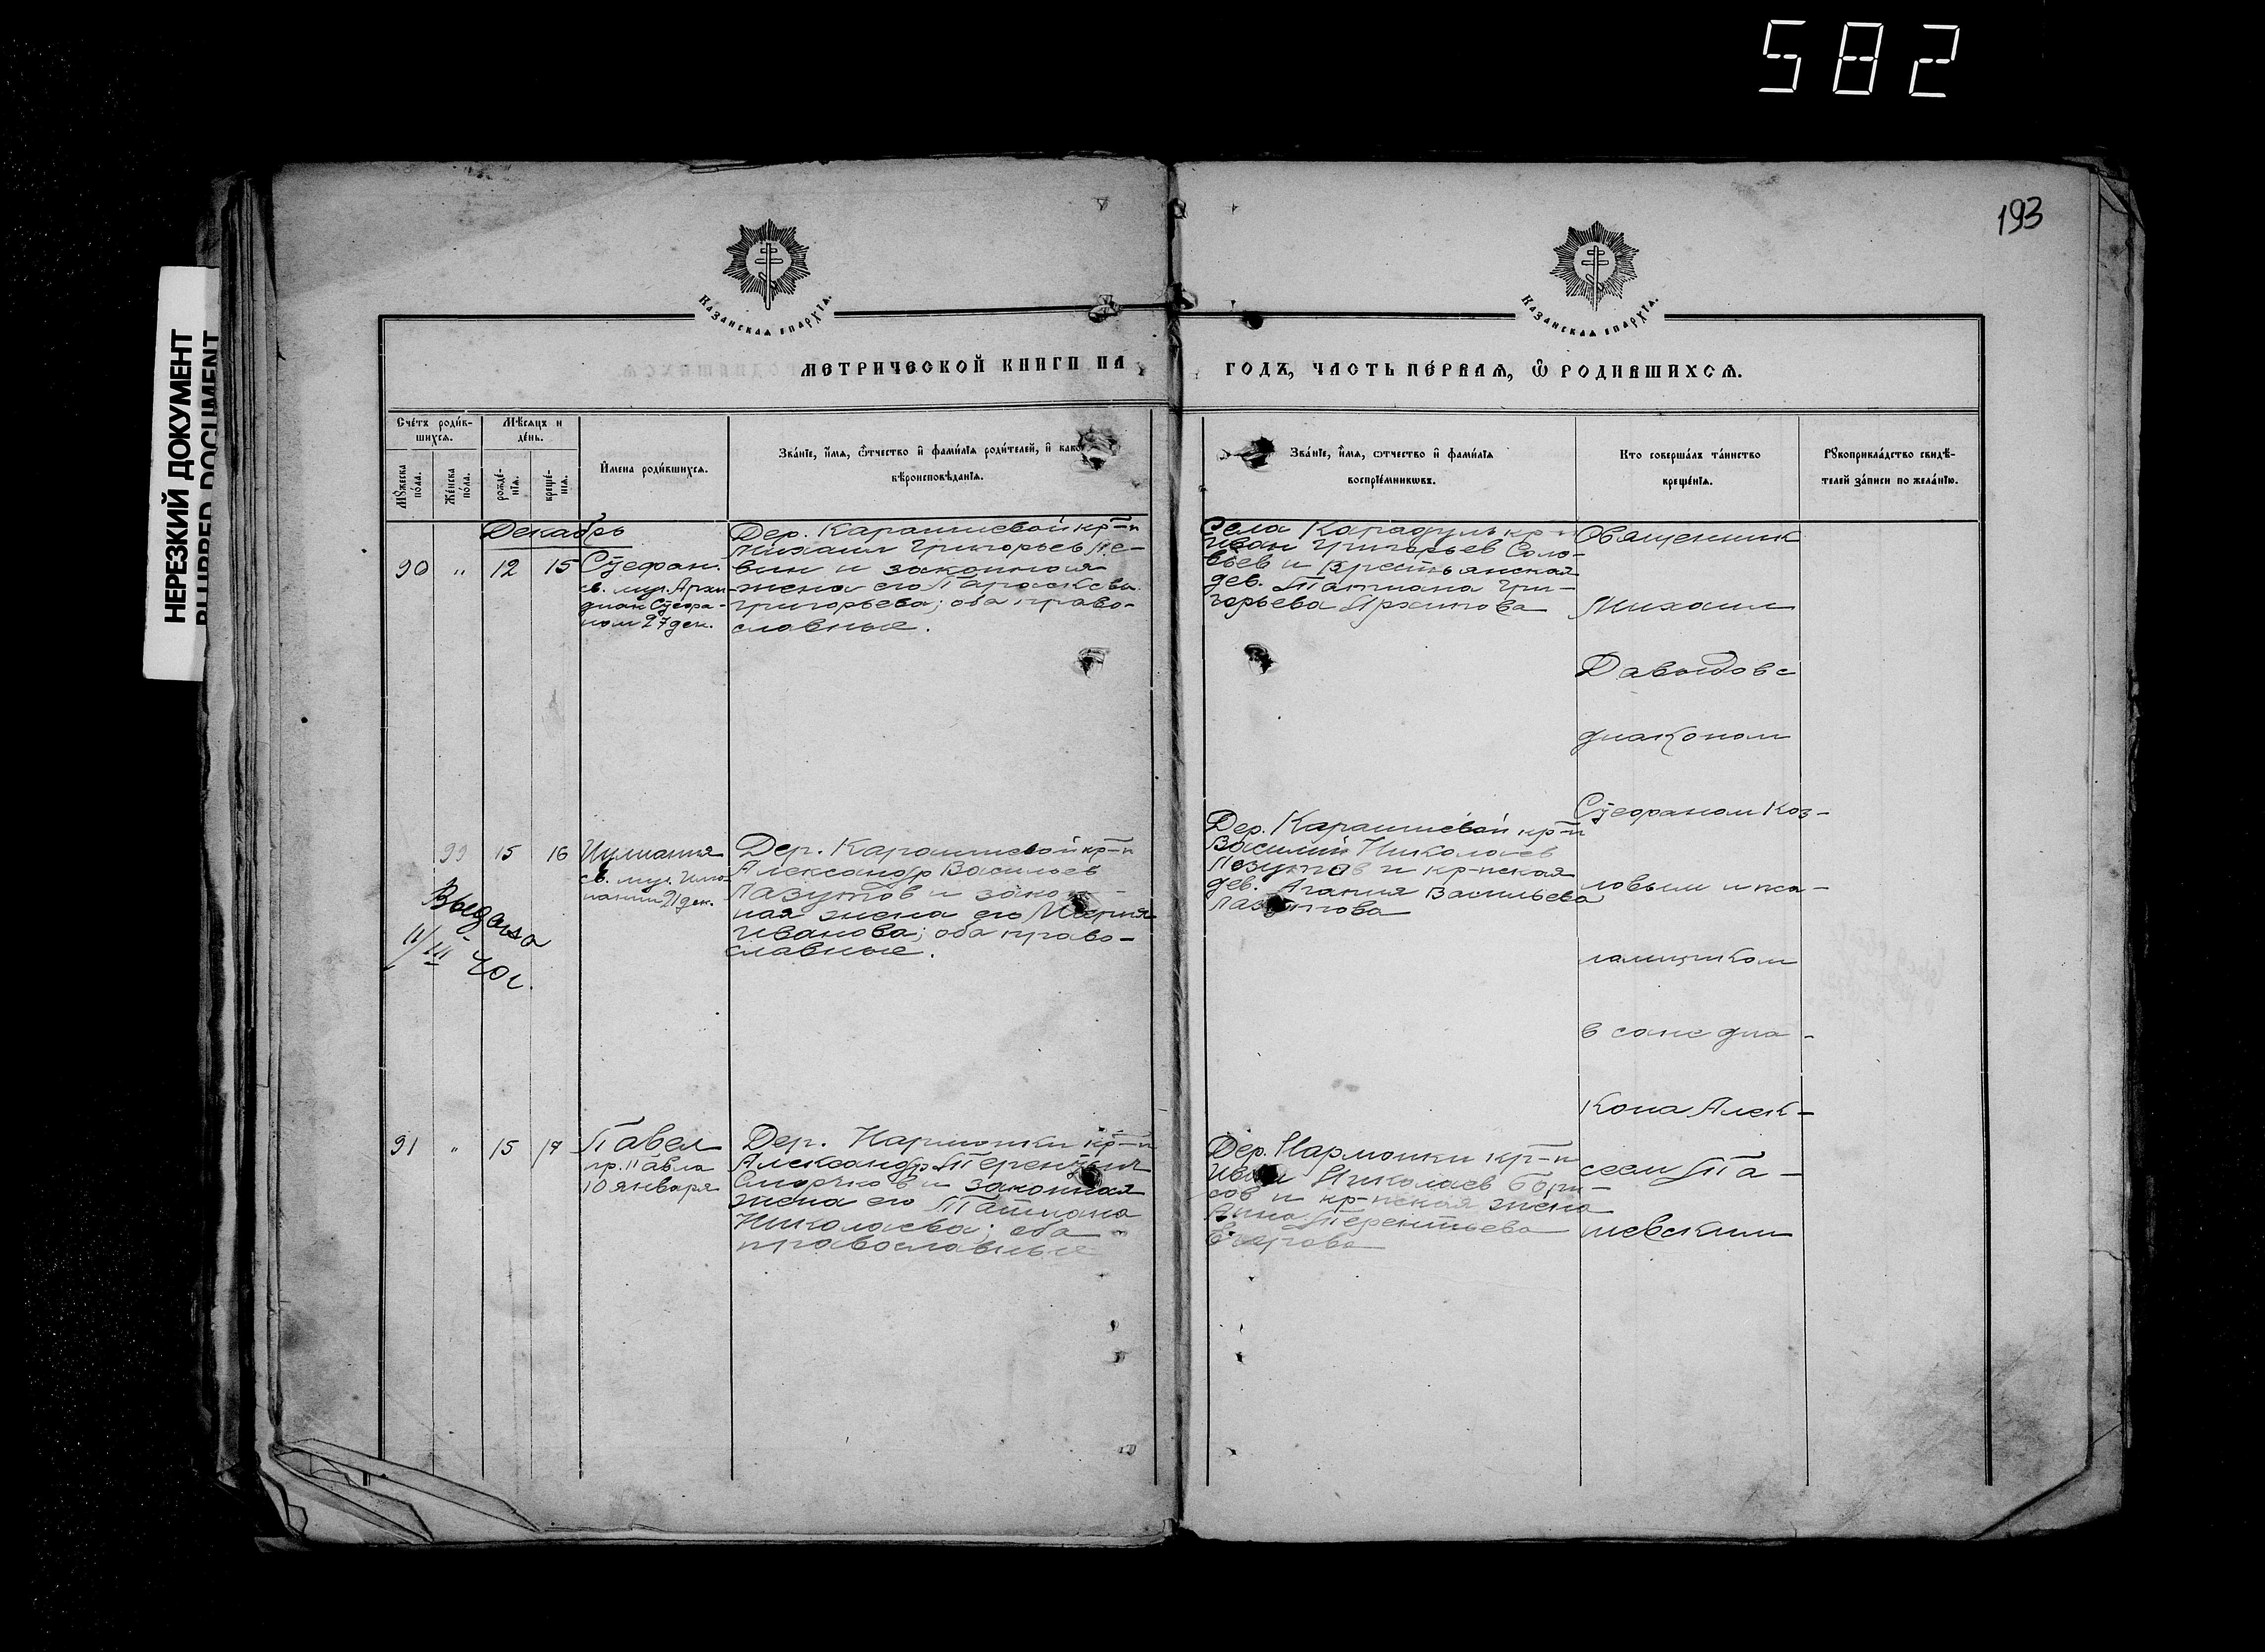 582
193
НЕРЕЗКИЙ ДОКУМЕНТ
BLURRED DOCUMENT
Казанская епархїѧ.
Казанская епархїѧ.
МЕТРИЧЕСКОЙ КНИГИ НА
ГОДЪ, ЧАСТЬ ПЕ́РВАЯ, Ѽ РОДИВШИХСЯ.
Сче́тъ роди́в-
шихсѧ.
Мѣ́сѧцъ и
де́нь.
Мꙋ́жеска
по́ла.
Же́нска
по́ла.
рожде́-
нїѧ.
креще́-
нїѧ.
И҆мена роди́вшихсѧ.
Зва́нїе, и҆́мѧ, ѻ҆́тчество и҆ фами́лїѧ роди́телей, и҆ како
вѣ̀роисповѣ́данїѧ.
Зва́нїе, и҆́мѧ, ѻ҆тчество и҆ фами́лїѧ
воспрїе́мникѡвъ.
Кто соверша́лъ та́инство
креще́нїѧ.
Рꙋкоприкла́дство свидѣ́-
телей за́писи по жела́нїю.
Декабрь
90 „ 12 15 Стефан.
св. муч. Архи-
диак Стефа-
ном 27 дек.
Дер. Карашшевой кр-н
Михаил Григорьев Ле-
вин и законная
жена его Параскева
Григорьева; оба право-
славные.
Села Карадули кр-н
Иван Григорьев Соло-
вьев и Крестьянская
дев. Татиана Гри-
горьева Архипова
Священник
Михаил
Давыдов с
диаконом
Стефаном Коз-
ловым и пса-
ломщиком
в сане диа-
кона Алек-
сеем Та-
шевским
99 15 16 Иулиания
св. муч. Иули-
ании 21 дек.
Дер. Карашшевой кр-н
Александр Васильев
Лазутов и закон-
ная жена его Мария
Иванова; оба право-
славные.
Дер. Карашшевой кр-н
Василий Николаев
Лазутов и кр-нская
дев. Агапия Васильева
Лазутова
Выдана
11/III 40 г.
91 „ 15 17 Павел
пр. Павла
10 января
Дер. Нармонки кр-н
Александр Терентьев
Сморчков и законная
жена его Татиана
Николаева; оба
православные
Дер. Нармонки кр-н
Иван Николаев Бори-
сов и кр-нская жена
Анна Терентьева
Егорова